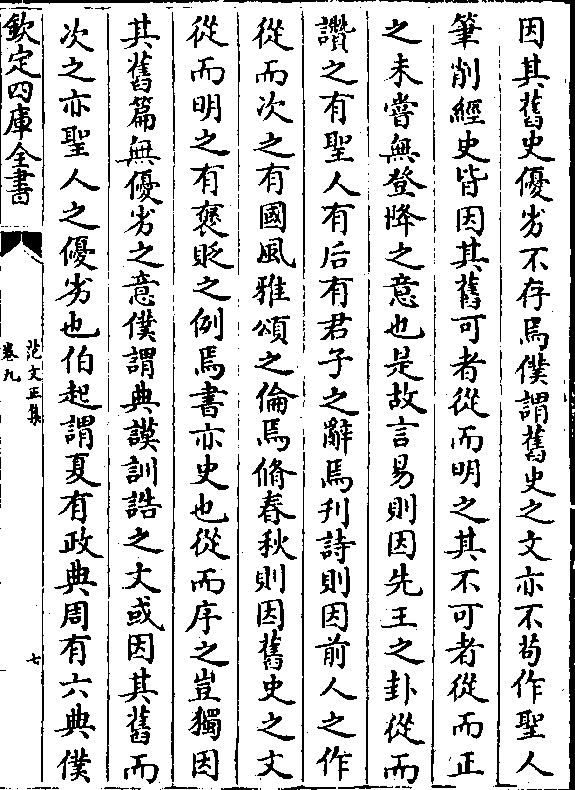 因其舊史優劣不存焉僕謂舊史之文亦不茍作聖人
筆削經史皆因其舊可者從而明之其不可者從而正
之未嘗無登降之意也是故言易則因先王之卦從而
讚之有聖人有后有君子之辭焉刋詩則因前人之作
從而次之有國風雅頌之倫焉脩春秋則因舊史之文
從而明之有襃貶之例焉書亦史也從而序之豈獨因
其舊篇無優劣之意僕謂典謨訓誥之文或因其舊而
次之亦聖人之優劣也伯起謂夏有政典周有六典僕
欽定四庫全書
范文正集
卷九
七